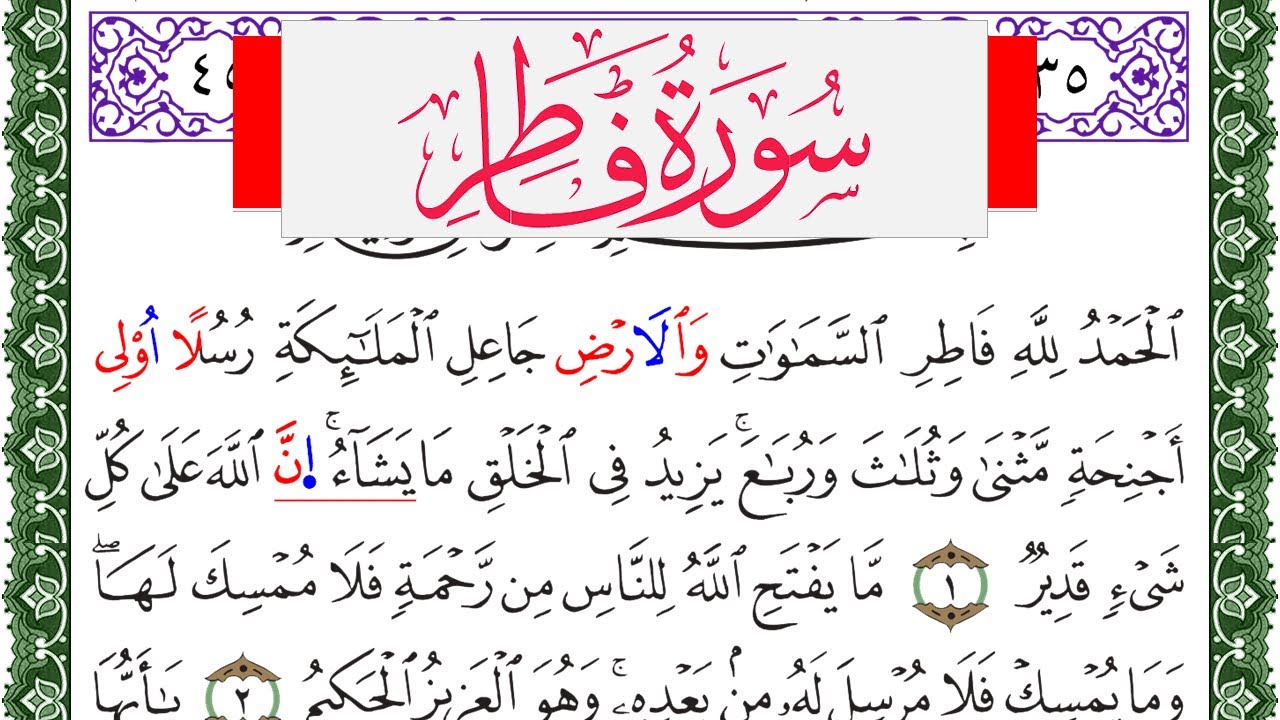 ٣٥ ٤٥
سُورَةُ فَاطِرٍ
اَ۬لْحَمْدُ لِلَّهِ فَاطِرِ اِ۬لسَّمَٰوَٰتِ وَالَارْضِ جَاعِلِ اِ۬لْمَلَٰٓئِكَةِ رُسُلًا اُوْلِى
أَجْنِحَةٍ مَّثْنَىٰ وَثُلَٰثَ وَرُبَٰعَۚ يَزِيدُ فِى اِ۬لْخَلْقِ مَا يَشَآءُۚ اِ۪نَّ اَ۬للَّهَ عَلَىٰ كُلِّ
شَىْءٍ قَدِيرٌ ١ مَّا يَفْتَحِ اِ۬للَّهُ لِلنَّاسِ مِن رَّحْمَةٍ فَلَا مُمْسِكَ لَهَاۖ
وَمَا يُمْسِكْ فَلَا مُرْسِلَ لَهُۥ مِنۢ بَعْدِهِۦۚ وَهُوَ اَ۬لْعَزِيزُ اُ۬لْحَكِيمُ ٢ يَٰٓأَيُّهَا